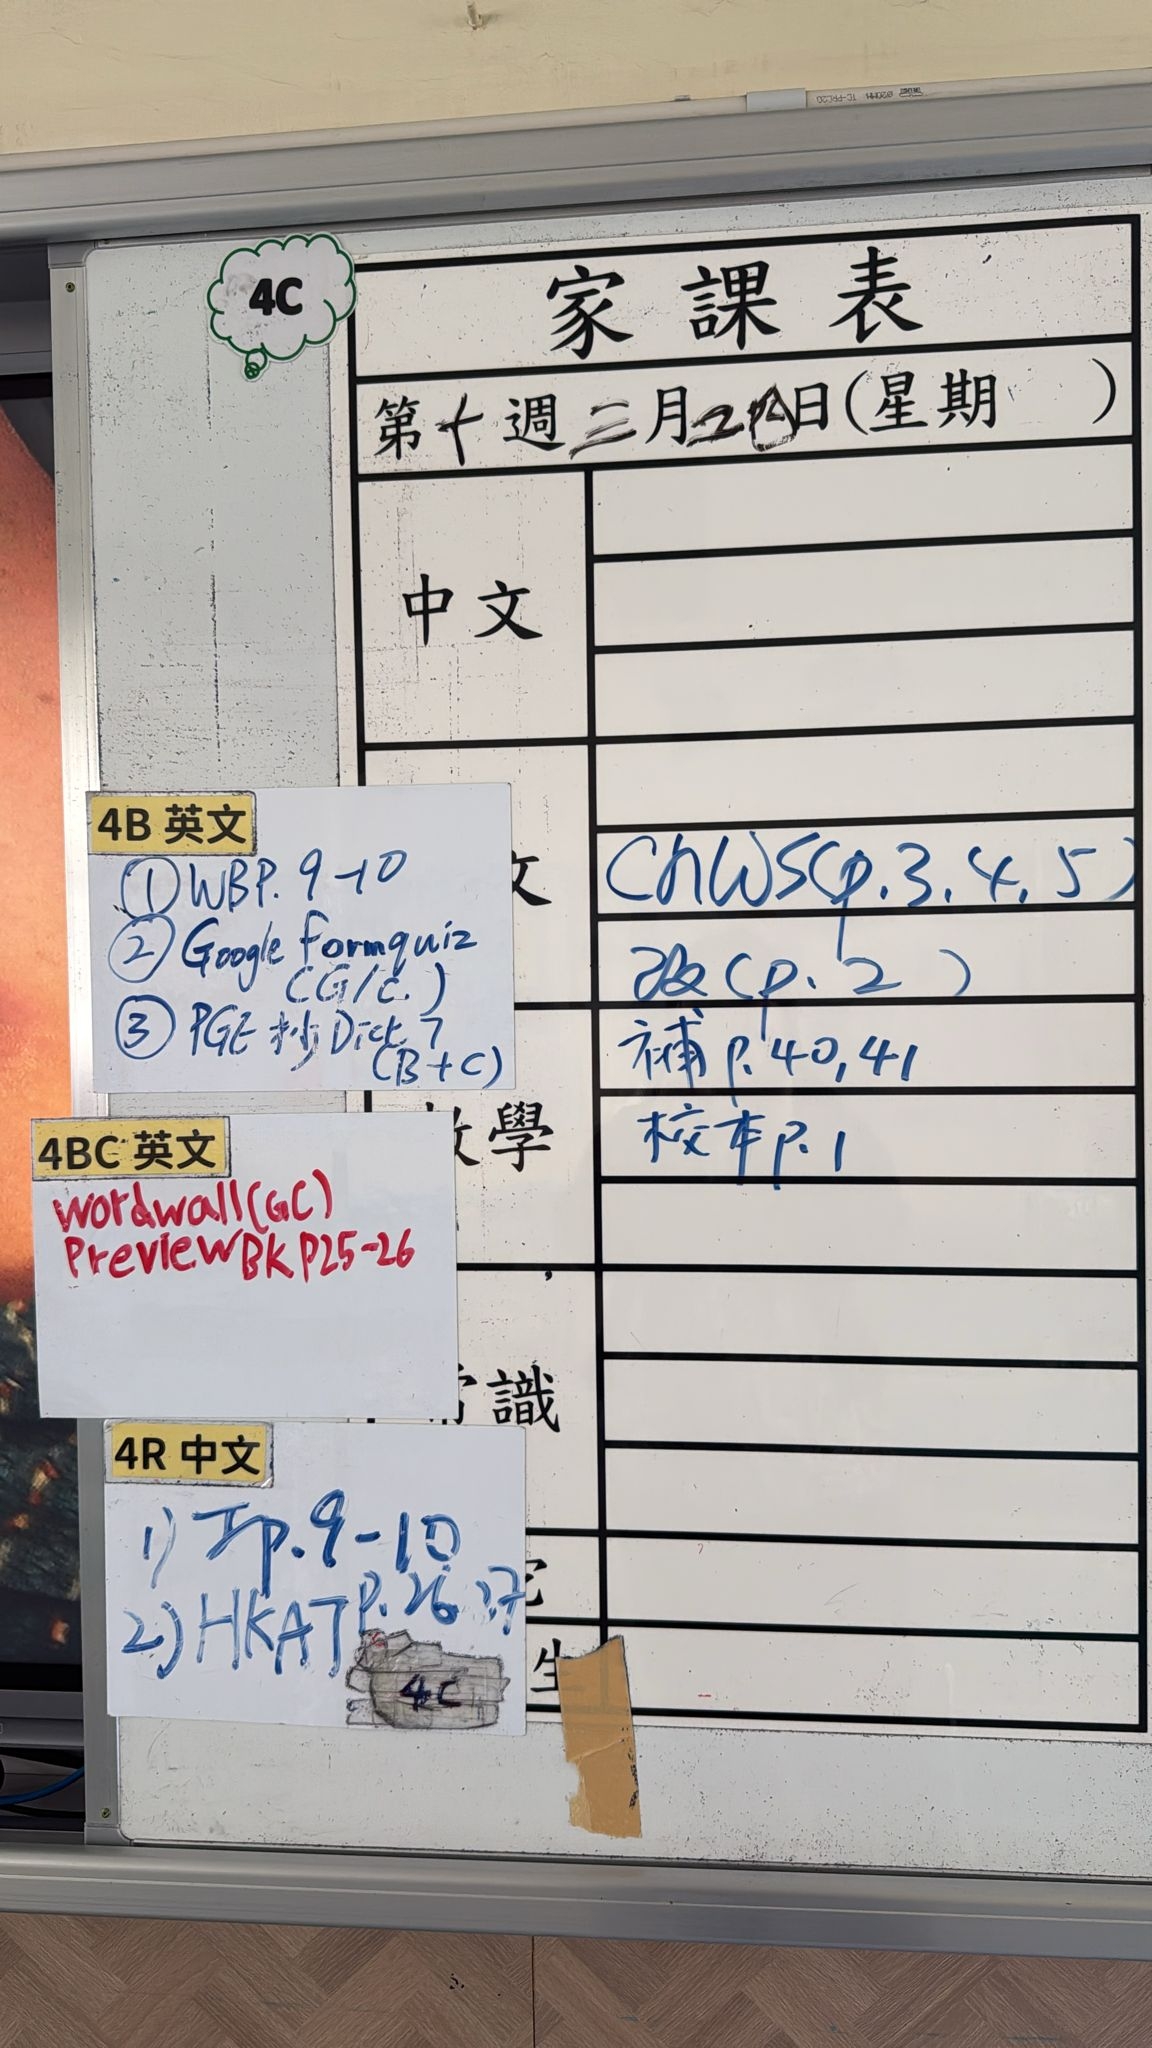 4C
家課表
第十週三月2日(星期 )
中文
文
Ch WS(p.3.4.5)
改(p.2)
數學
補p.40,41
校本p.1
常識
生
4B 英文
① WB P.9-10
② Google form quiz
(G/C.)
③ PGE 抄 Dict. 7
(B+C)
4BC 英文
Wordwall(GC)
Preview BK P25-26
4R 中文
1) 工p.9-10
2) HKAT P.26,27
4C